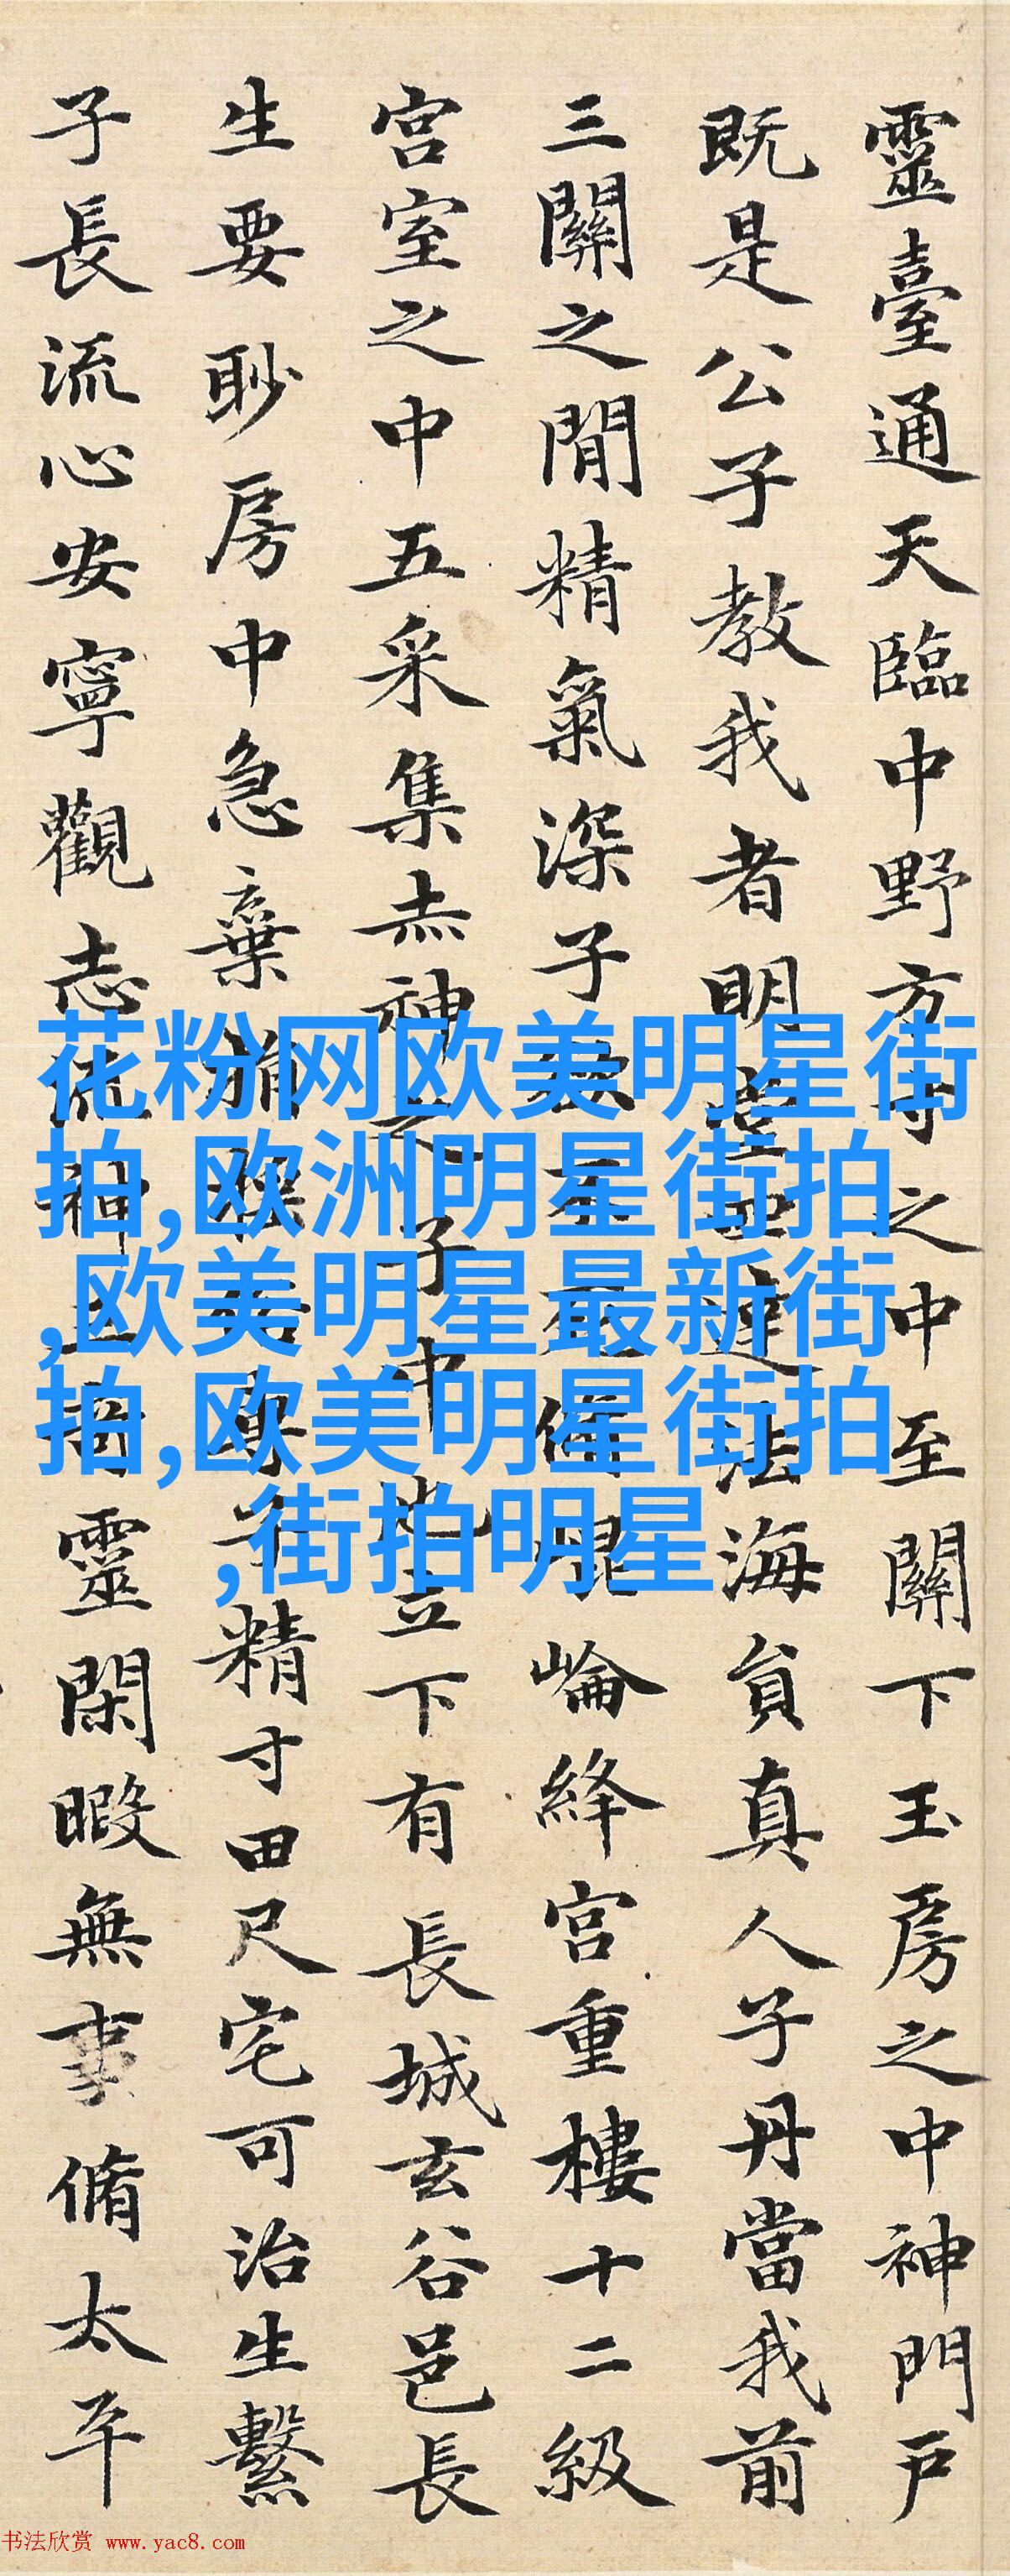 靈臺通天臨中野方寸之中至關下玉房之中神門戶
既是公子教我者明堂四達法海員真人子丹當我前
三關之間精氣深子欲不死脩崑崙絳宮重樓十二級
宮室之中五采集赤神之子中池立下有長城玄谷邑長
生要眇房中急棄捐淫俗專子精寸田尺宅可治生繫
子長流心安寧觀志流神三奇靈閑暇無事脩太平
花粉网欧美明星街
拍,欧洲明星街拍
,欧美明星最新街
拍,欧美明星街拍
,街拍明星
书法欣赏 www.yac8.com